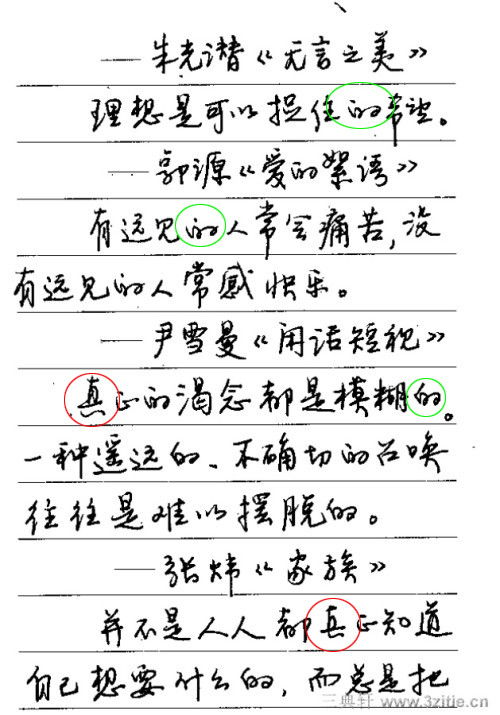 ——朱光潜《无言之美》
理想是可以捉住的希望。
——郭源《爱的絮语》
有远见的人常会痛苦,没
有远见的人常感快乐。
——尹雪曼《闲话短视》
真正的渴念都是模糊的。
一种遥远的、不确切的召唤
往往是难以摆脱的。
——张炜《家族》
并不是人人都真正知道
自己想要什么的,而总是把
三典轩 www.3zitie.cn